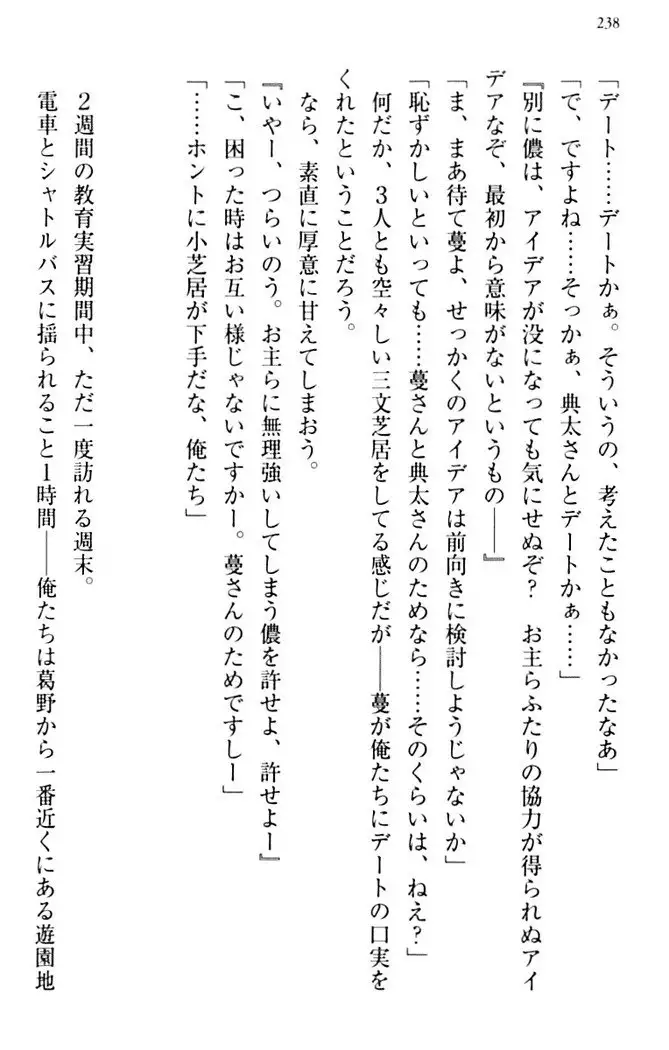 238
「デート……デートかぁ。そういうの、考えたこともなかったなあ」
「で、ですよね……そっかぁ、典太さんとデートかぁ……」
『別に儂は、アイデアが没になっても気にせぬぞ？　お主らふたりの協力が得られぬアイ
デアなぞ、最初から意味がないというもの――』
「ま、まあ待て蔓よ、せっかくのアイデアは前向きに検討しようじゃないか」
「恥ずかしいといっても……蔓さんと典太さんのためなら……そのくらいは、ねえ？」
何だか、３人とも空々しい三文芝居をしてる感じだが――蔓が俺たちにデートの口実を
くれたということだろう。
なら、素直に厚意に甘えてしまおう。
『いやー、つらいのう。お主らに無理強いしてしまう儂を許せよ、許せよー』
「こ、困った時はお互い様じゃないですかー。蔓さんのためですしー」
「……ホントに小芝居が下手だな、俺たち」
２週間の教育実習期間中、ただ一度訪れる週末。
電車とシャトルバスに揺られること１時間――俺たちは葛野から一番近くにある遊園地